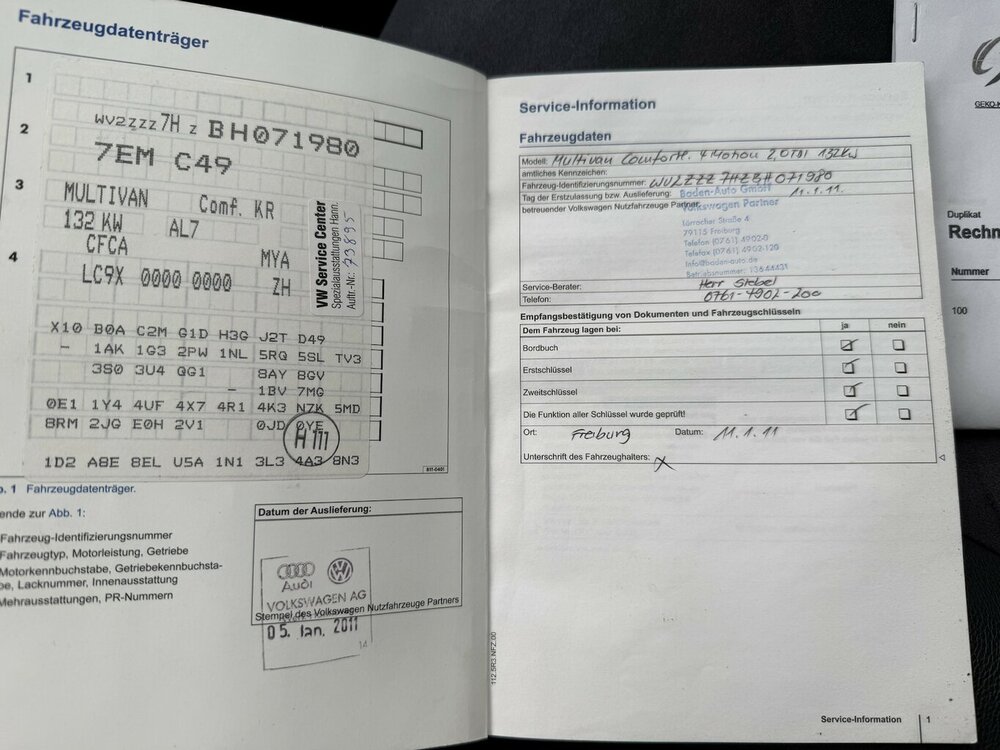 Fahrzeugdatenträger
1
WV2ZZZ7H Z BH071980
2
7EM C49
3
MULTIVAN Comf. KR
132 KW AL7
4
CFCA MYA
LC9X 0000 0000 ZH
VW Service Center
Spezialausstattungen Hann.
Auftr.-Nr.: 73895
X10 B0A C2M G1D H3G J2T D49
- 1AK 1G3 2PW 1NL 5RQ 5SL TV3
3S0 3U4 QG1 8AY 8GV
- 1BV 7MG
0E1 1Y4 4UF 4X7 4R1 4K3 N7K 5MD
8RM 2JG E0H 2V1 0JD 0YE
H 111
1D2 A8E 8EL U5A 1N1 3L3 4A3 8N3
B11-0401
b. 1 Fahrzeugdatenträger.
ende zur Abb. 1:
Fahrzeug-Identifizierungsnummer
Fahrzeugtyp, Motorleistung, Getriebe
Motorkennbuchstabe, Getriebekennbuchsta-
be, Lacknummer, Innenausstattung
Mehrausstattungen, PR-Nummern
Datum der Auslieferung:
Audi
VOLKSWAGEN AG
Stempel des Volkswagen Nutzfahrzeuge Partners
05. Jan. 2011
14
112.5R3.NFZ.00
Service-Information
Fahrzeugdaten
Modell: Multivan Comfortl. 4Motion 2,0TDI 132KW
amtliches Kennzeichen:
Fahrzeug-Identifizierungsnummer: WV2ZZZ 7HZBH071980
Tag der Erstzulassung bzw. Auslieferung: 11.1.11.
betreuender Volkswagen Nutzfahrzeuge Partner:
Baden-Auto GmbH
Volkswagen Partner
Lörracher Straße 4
79115 Freiburg
Telefon (0761) 4902-0
Telefax (0761) 4902-120
info@baden-auto.de
Betriebsnummer: 13644431
Service-Berater: Herr Stebel
Telefon: 0761-4902-200
Empfangsbestätigung von Dokumenten und Fahrzeugschlüsseln
Dem Fahrzeug lagen bei: ja nein
Bordbuch
Erstschlüssel
Zweitschlüssel
Die Funktion aller Schlüssel wurde geprüft!
Ort: Freiburg Datum: 11.1.11
Unterschrift des Fahrzeughalters: X
Service-Information 1
Duplikat
Rechn
Nummer
100